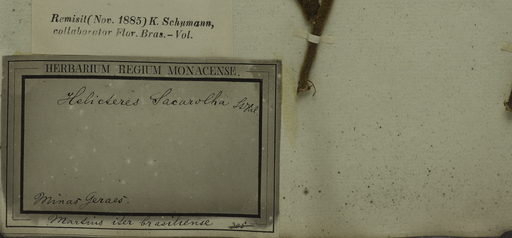 Remisit (Nov. 1885) K. Schumann,
collaborator Flor. Bras. – Vol.
HERBARIUM REGIUM MONACENSE.
Helicteres Sacarolha
Minas Geraes.
Martius iter brasiliense